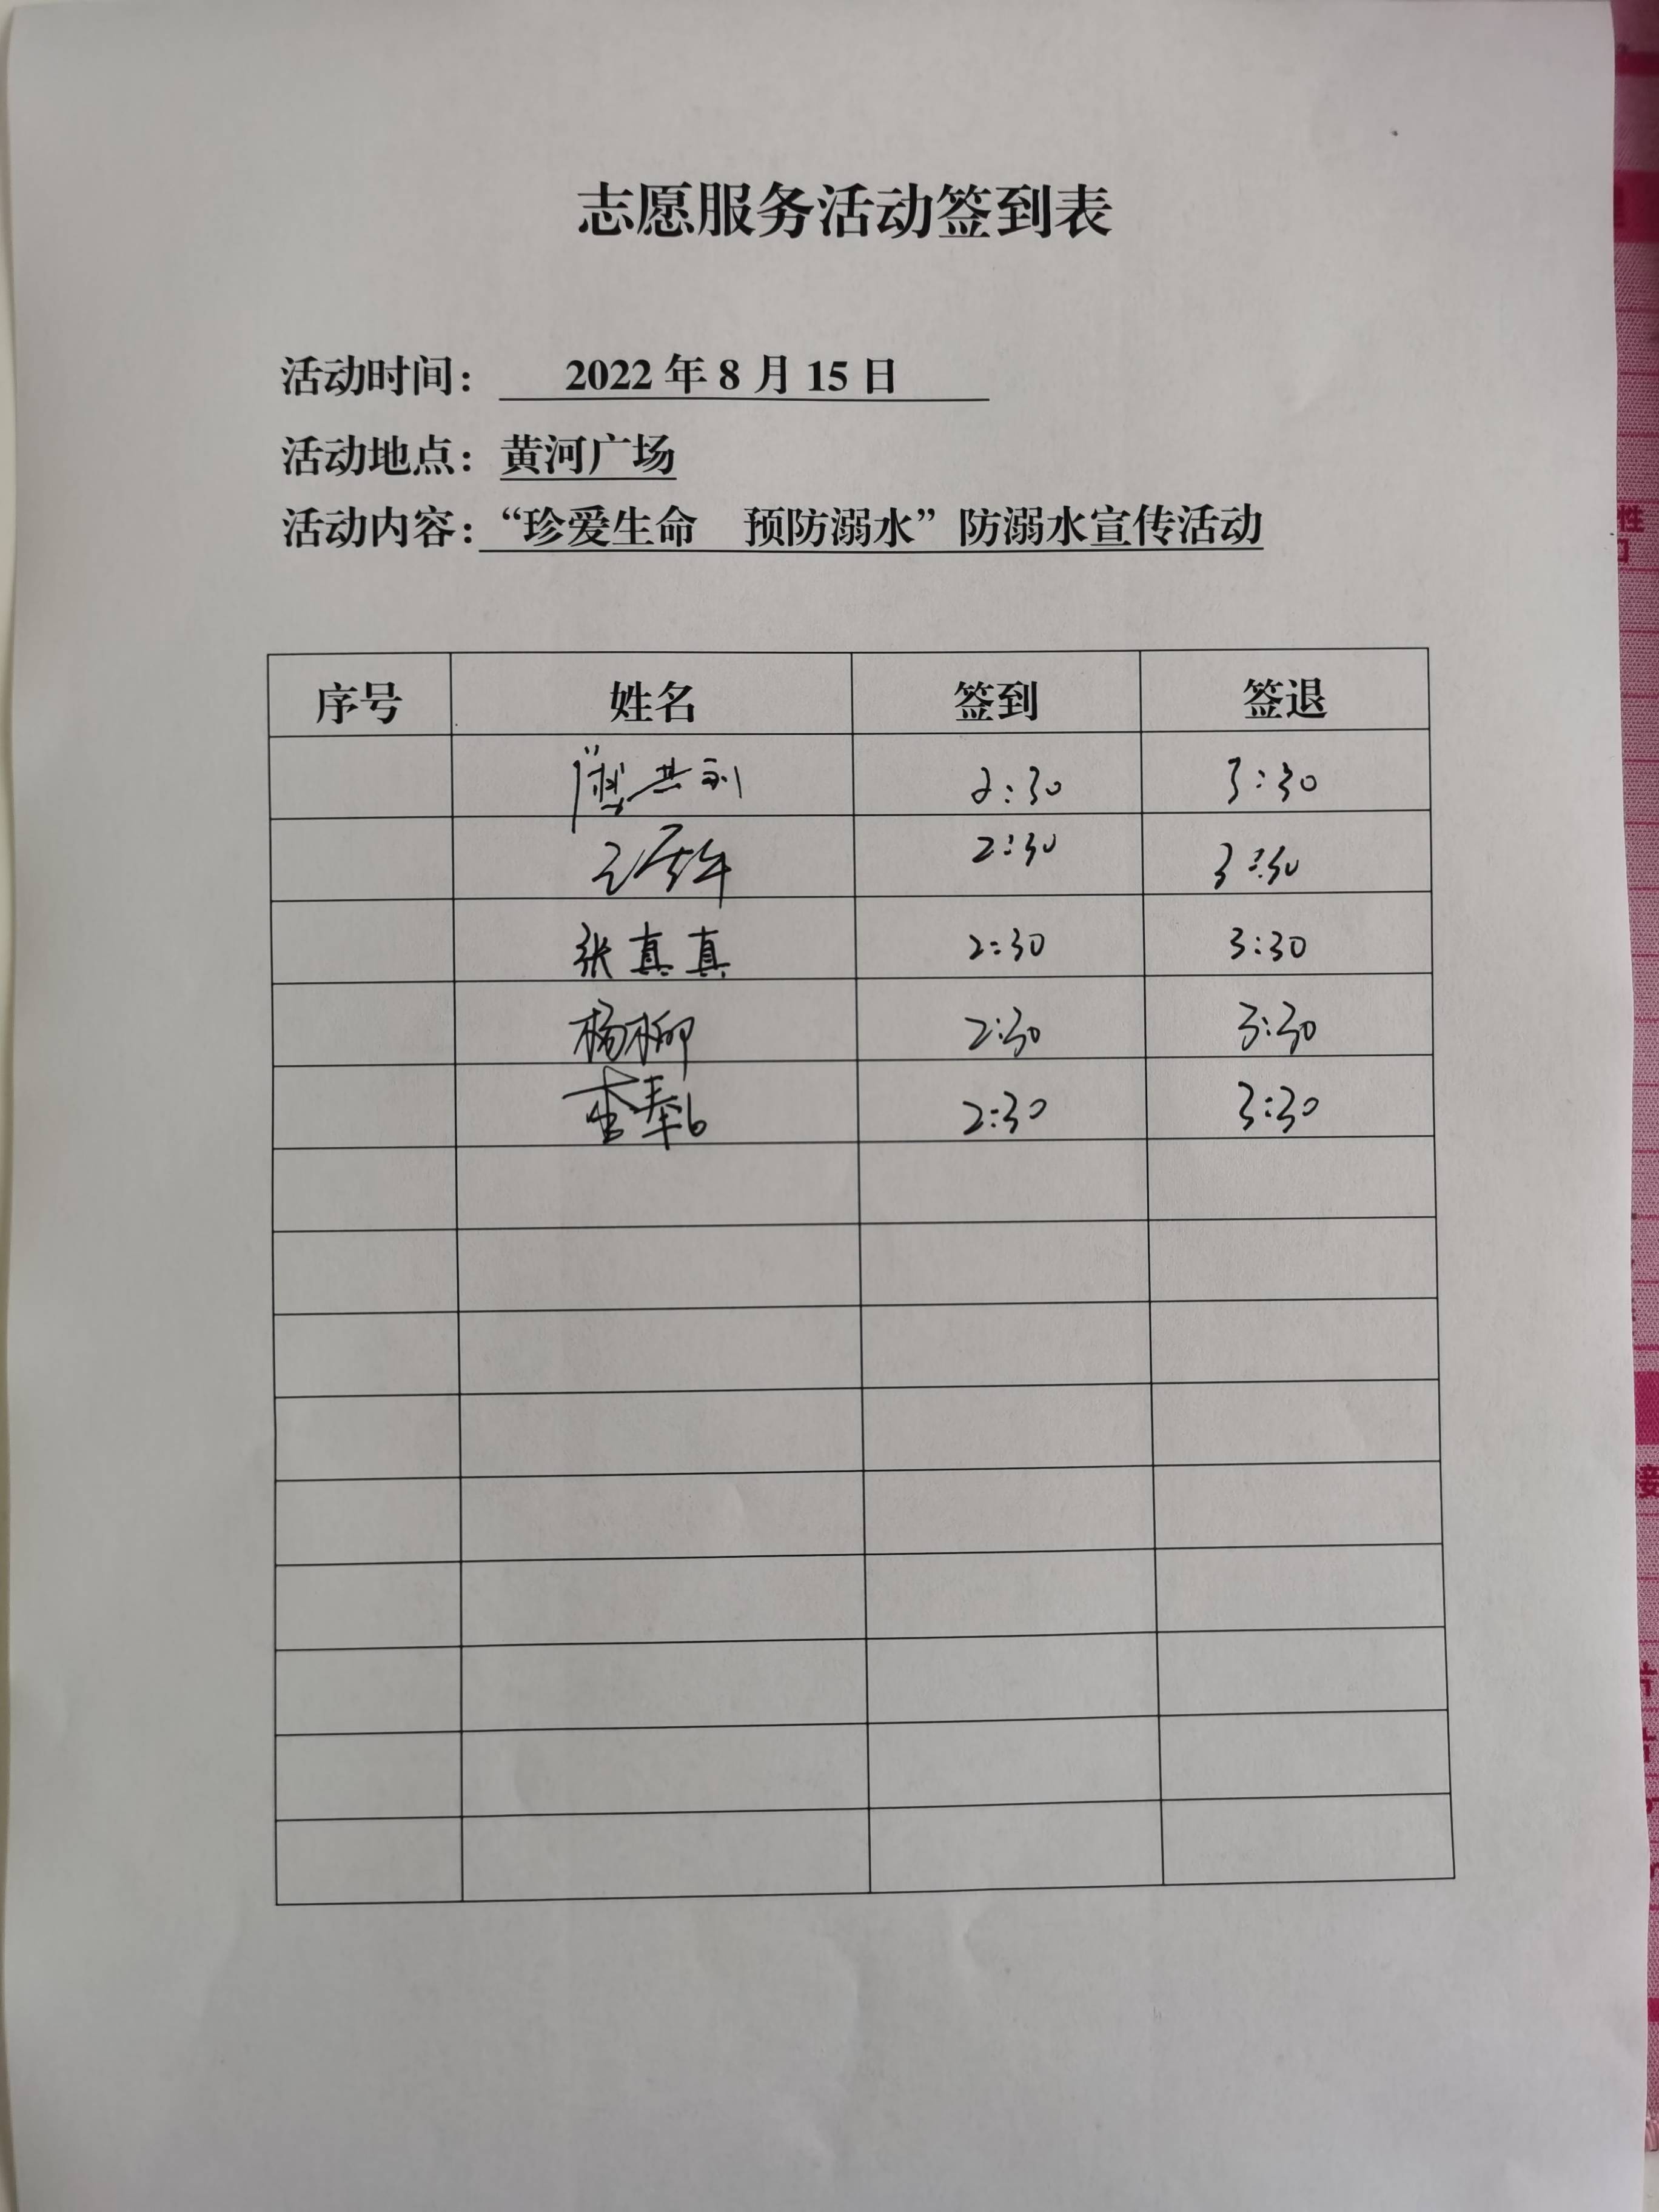 志愿服务活动签到表
活动时间： 2022 年 8 月 15 日
活动地点：黄河广场
活动内容：“珍爱生命 预防溺水”防溺水宣传活动
序号 姓名 签到 签退
2:30 3:30
2:30 3:30
张真真 2:30 3:30
杨柳 2:30 3:30
2:30 3:30
性
接